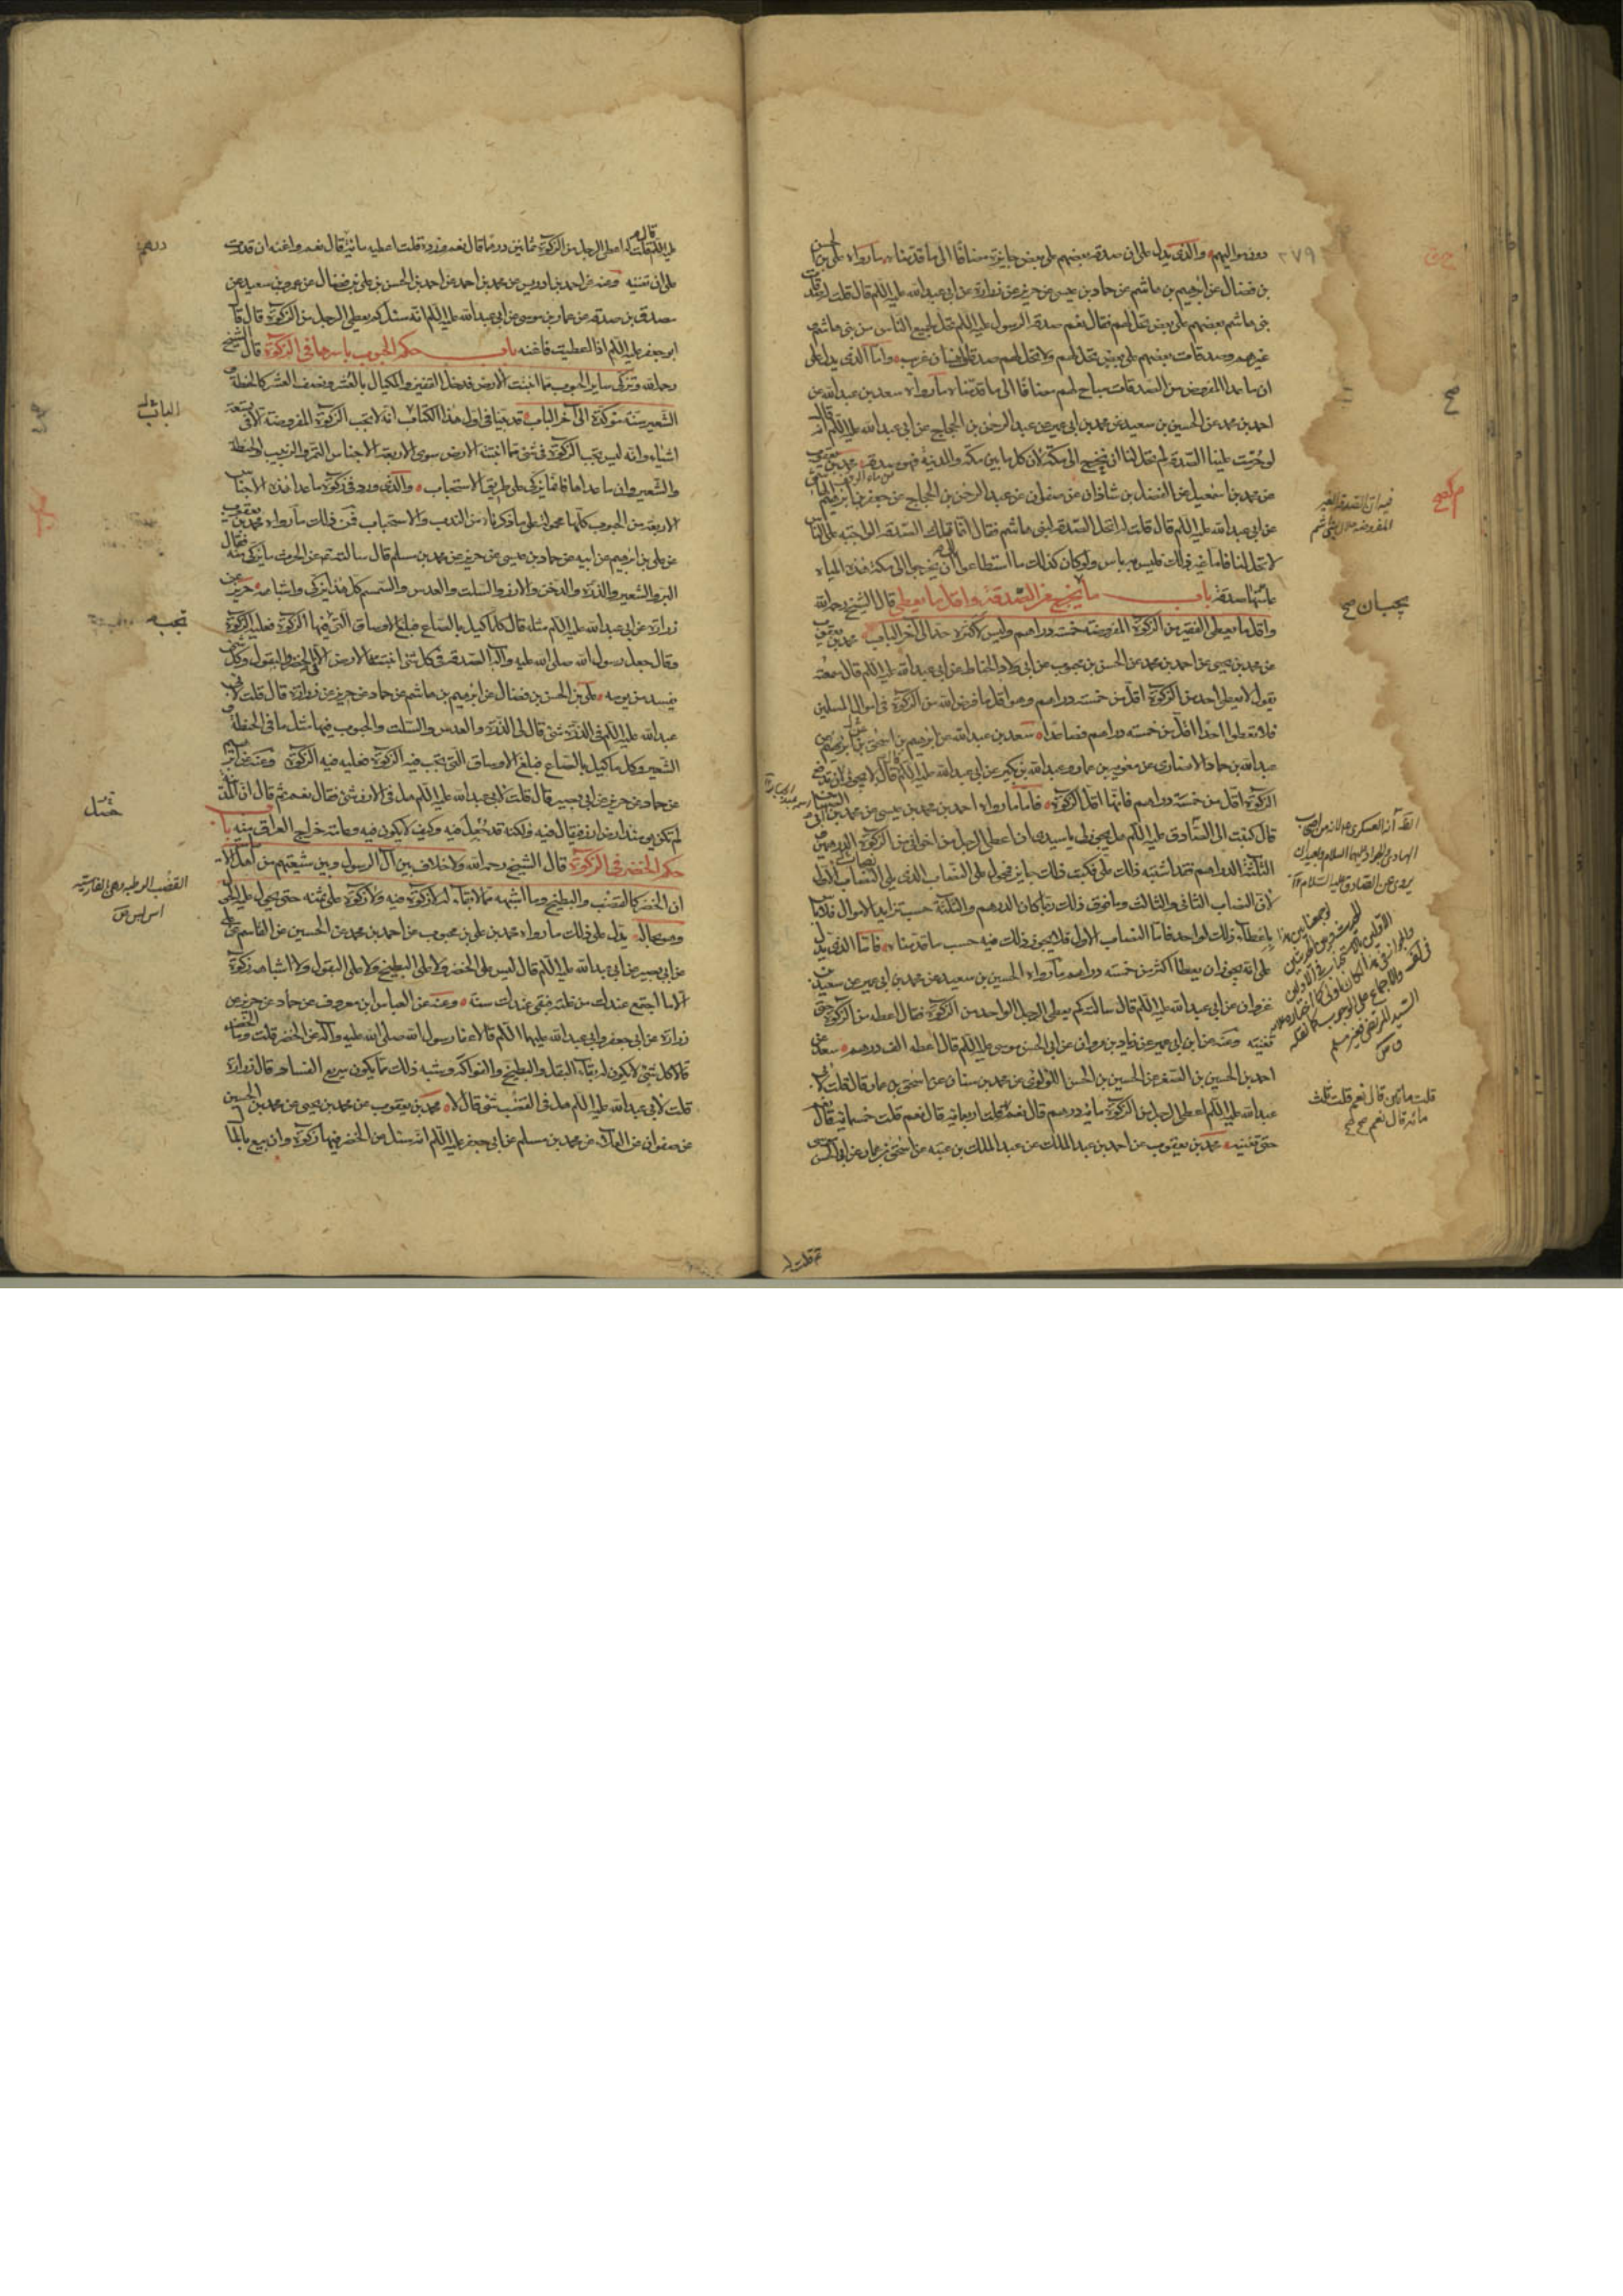 دون مواليهم والذي يدل على ان صدقة بعضهم على بعض جايزة مضافا الى ما قدمناه ما رواه على بن الحسن
بن فضال عن ابرهيم بن هاشم عن حماد بن عيسى عن حريز عن زرارة عن ابي عبد الله عليه السلم قال قلت له صدقات
بني هاشم بعضهم على بعض تحل لهم فقال نعم صدقة الرسول عليه السلم تحل لجميع الناس من بني هاشم
غيرهم وصدقات بعضهم على بعض تحل لهم ولا تحل لهم صدقات انسان غريب واما الذي يدل على
ان ما عدا المفروض من الصدقات مباح لهم مضافا الى ما قدمناه ما رواه سعد بن عبد الله عن
احمد بن محمد عن الحسين بن سعيد عن محمد بن ابي عمير عن عبد الرحمن بن الحجاج عن ابي عبد الله عليه السلم انه قال
لو حرمت علينا الصدقة لم تحل لنا ان نخرج الى مكة لان كل ما بين مكة والمدينة فهو صدقة محمد بن يعقوب
عن محمد بن اسمعيل عن الفضل بن شاذان عن صفوان عن عبد الرحمن بن الحجاج عن جعفر بن ابرهيم الهاشمي
عن ابي عبد الله عليه السلم قال قلت له اتحل الصدقة لبني هاشم فقال انما تلك الصدقة الواجبة على الناس
لا تحل لنا فاما غير ذلك فليس به باس ولو كان كذلك ما استطاعوا ان يخرجوا الى مكة هذه المياه
عامتها صدقة باب ما يخرج من الصدقة واقل ما يعطى قال الشيخ رحمه الله
واقل ما يعطى الفقير من الزكوة المفروضة خمسة دراهم وليس لاكثره حد الى آخر الباب محمد بن يعقوب
عن محمد بن يحيى عن احمد بن محمد عن الحسن بن محبوب عن ابي ولاد الحناط عن ابي عبد الله عليه السلم قال سمعته
يقول لا يعطى احد من الزكوة اقل من خمسة دراهم وهو اقل ما فرض الله من الزكوة في اموال المسلمين
فلا تعطوا احدا اقل من خمسة دراهم فصاعدا سعد بن عبد الله عن ابرهيم بن اسحق بن ابرهيم عن
عبد الله بن حماد الانصاري عن معوية بن عمار وعبد الله بن بكير عن ابي عبد الله عليه السلم قال قال لا يجوز ان يدفع
الزكوة اقل من خمسة دراهم فانها اقل الزكوة فاما ما رواه احمد بن محمد بن عيسى عن محمد بن ابي الصهبان
قال كتبت الى الصادق عليه السلم هل يجوز لي يا سيدي ان اعطي الرجل من اخواني من الزكوة الدرهمين
الثلثة الدراهم فقد اشتبه ذلك علي فكتب ذلك جايز فمحمول على النصاب الذي يلي النصاب الاول
لان النصاب الثاني والثالث وما فوق ذلك ربما كان الدرهم والثلثة حسب تزايد الاموال فلا باس
باعطاء ذلك لواحد فاما النصاب الاول فلا يجوز ذلك فيه حسب ما قدمناه فاما الذي يدل
على انه يجوز ان يعطا اكثر من خمسة دراهم ما رواه الحسين بن سعيد عن محمد بن ابي عمير عن سعيد بن
غزوان عن ابي عبد الله عليه السلم قال سالته كم يعطى الرجل الواحد من الزكوة فقال اعطه من الزكوة حتى
تغنيه وعنه عن ابن ابي عمير عن زياد بن مروان عن ابي الحسن موسى عليه السلم قال اعطه الف درهم سعد عن
احمد بن الحسين بن الصقر عن الحسين بن الحسن اللؤلؤي عن محمد بن سنان عن اسحق بن عمار قال قلت لابي
عبد الله عليه السلم اعطى الرجل من الزكوة مائة درهم قال نعم قلت اربعمائة قال نعم قلت خمسمائة قال نعم
حتى تغنيه محمد بن يعقوب عن احمد بن عبد الملك عن عبد الملك بن عتبة عن اسحق بن عمار عن ابي الحسن
٢٧٩
صح
فيه ان الصدقة الغير
المفروضة حلال لبني هاشم
قلت مائتين قال نعم قلت ثلث
مائة قال نعم صح
عليه السلم قال قلت له اعطى الرجل من الزكوة ثمانين درهما قال نعم وزده قلت اعطيه مائة قال نعم واغنه ان قدرت
على ان تغنيه وعنه عن احمد بن ادريس عن محمد بن احمد عن احمد بن الحسن بن علي بن فضال عن عمرو بن سعيد عن
مصدق بن صدقة عن عمار بن موسى عن ابي عبد الله عليه السلم انه سئل كم يعطى الرجل من الزكوة قال قال
ابو جعفر عليه السلم اذا اعطيت فاغنه باب حكم الحبوب باسرها في الزكوة قال الشيخ
رحمه الله ويزكى ساير الحبوب مما انبتت الارض فدخل القفيز والمكيال بالعشر ونصف العشر كالحنطة و
الشعير سنة مؤكدة الى آخر الباب قد بينا في اول هذا الكتاب انه لا تجب الزكوة المفروضة الا في تسعة
اشياء وانه ليس تجب الزكوة في شئ مما انبتت الارض سوى الاربعة الاجناس التمر والزبيب والحنطة
والشعير وان ما عداها فانما يزكى على طريق الاستحباب والذي ورد في زكوة ما عدا هذه الاجناس
الاربعة من الحبوب كلها محمولة على ما ذكرناه من الندب والاستحباب فمن ذلك ما رواه محمد بن يعقوب
عن علي بن ابرهيم عن ابيه عن حماد بن عيسى عن حريز عن محمد بن مسلم قال سالته عن الحرث ما يزكى منه فقال
البر والشعير والذرة والدخن والارز والسلت والعدس والسمسم كل هذا يزكى واشباهه حريز عن
زرارة عن ابي عبد الله عليه السلم مثله قال كل ما كيل بالصاع فبلغ الاوساق التي فيها الزكوة فعليه الزكوة
وقال جعل رسول الله صلى الله عليه وآله الصدقة في كل شئ انبتت الارض الا في الخضر والبقول وكل شئ
يفسد من يومه علي بن الحسن بن فضال عن ابرهيم بن هاشم عن حماد عن حريز عن زرارة قال قلت لابي
عبد الله عليه السلم في الذرة شئ قال لي الذرة والعدس والسلت والحبوب فيها مثل ما في الحنطة و
الشعير وكل ما كيل بالصاع فبلغ الاوساق التي تجب فيه الزكوة فعليه فيه الزكوة وعنه عن ابرهيم
عن حماد عن حريز عن ابي بصير قال قلت لابي عبد الله عليه السلم هل في الارز شئ فقال نعم ثم قال ان المدينة
لم تكن يومئذ ارض ارز فيقال فيه ولكنه قد جعل فيه وكيف لا يكون فيه وعامة خراج العراق منه باب
حكم الخضر في الزكوة قال الشيخ رحمه الله ولا خلاف بين آل الرسول وبين شيعتهم من اهل الامامة
ان الخضر كالقضب والبطيخ وما اشبهه مما لا بقاء له لا زكوة فيه ولا زكوة على ثمنه حتى يحول عليه الحول
وهو بحاله يدل على ذلك ما رواه محمد بن علي بن محبوب عن احمد بن محمد عن الحسين عن القاسم عن علي
عن ابي بصير عن ابي عبد الله عليه السلم قال ليس على الخضر ولا على البطيخ ولا على البقول ولا اشباهه زكوة
الا ما اجتمع عندك من غلته فبقي عندك سنة وعنه عن العباس بن معروف عن حماد عن حريز عن
زرارة عن ابي جعفر وابي عبد الله عليهما السلم قالا عفا رسول الله صلى الله عليه وآله عن الخضر قلت وما الخضر
قالا كل شئ لا يكون له بقاء البقل والبطيخ والفواكه وشبه ذلك مما يكون سريع الفساد قال زرارة
قلت لابي عبد الله عليه السلم هل في القضب شئ قال لا محمد بن يعقوب عن محمد بن يحيى عن محمد بن الحسين
عن صفوان عن العلاء عن محمد بن مسلم عن ابي جعفر عليه السلم انه سئل عن الخضر فيها زكوة وان بيع بالمال
درهم